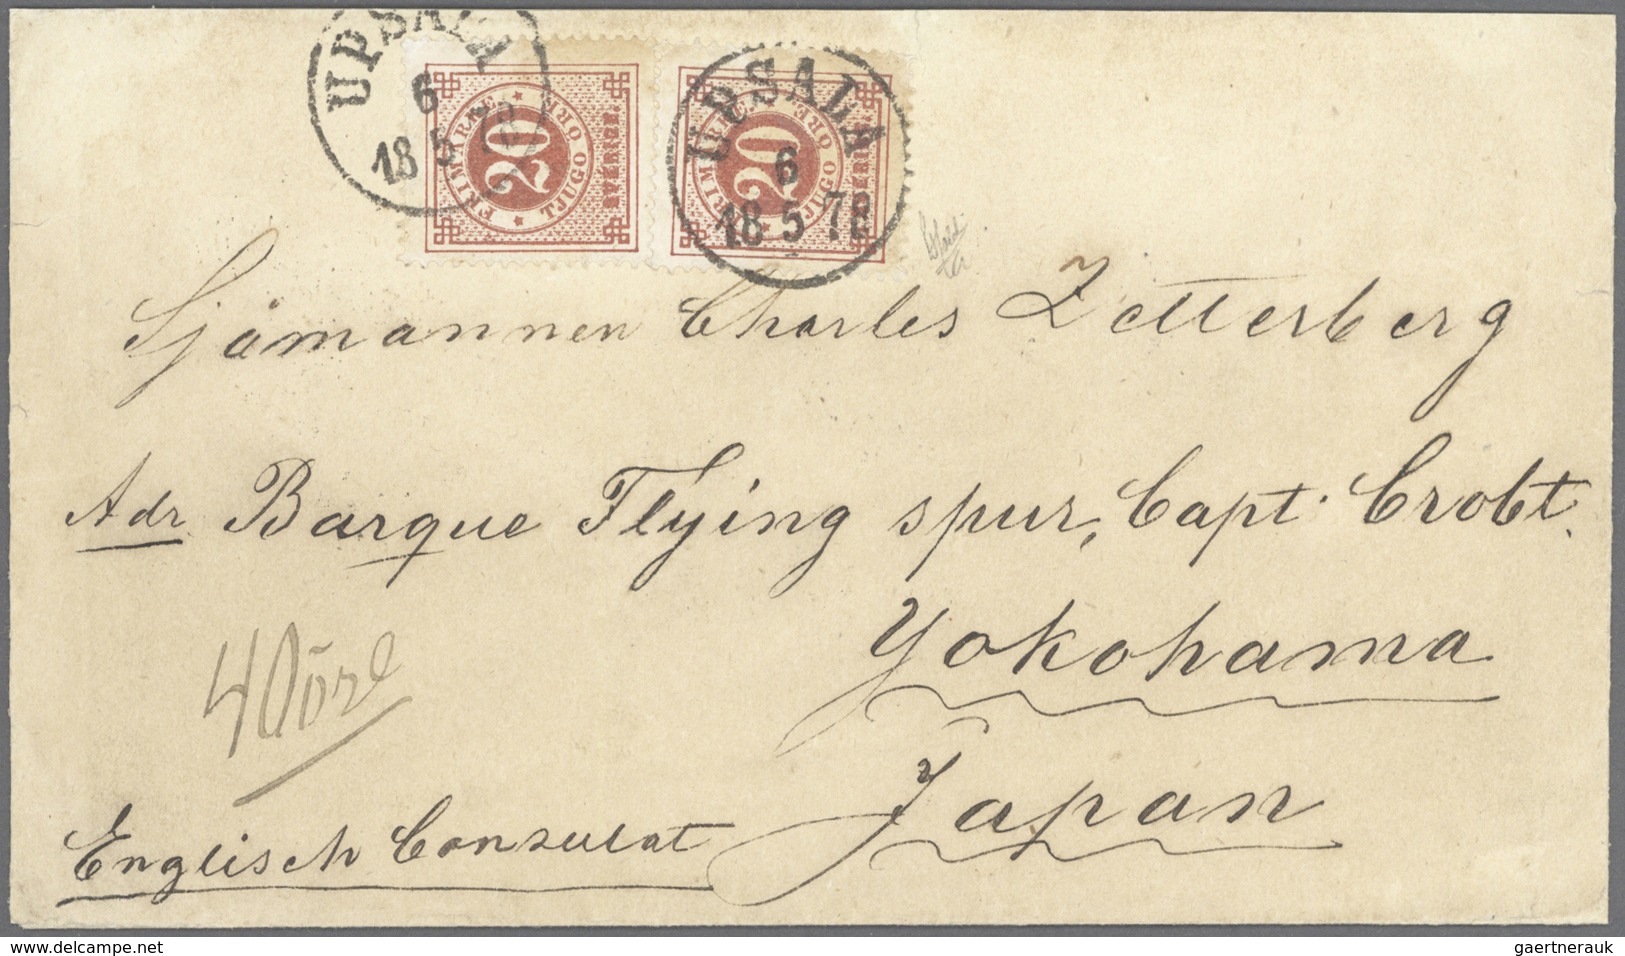 UPSALA
6
18 5 78
FRIMÄRKE
20
TJUGO ÖRE
SVERIGE.
UPSALA
6
18 5 78
FRIMÄRKE
20
TJUGO ÖRE
SVERIGE.
Sjömannen Charles Zetterberg
Adr Barque Flying spur, Capt. Crobt.
Yokohama
40 öre
Japan
Englisch Consulat
delcampe.net
gaertnerauk